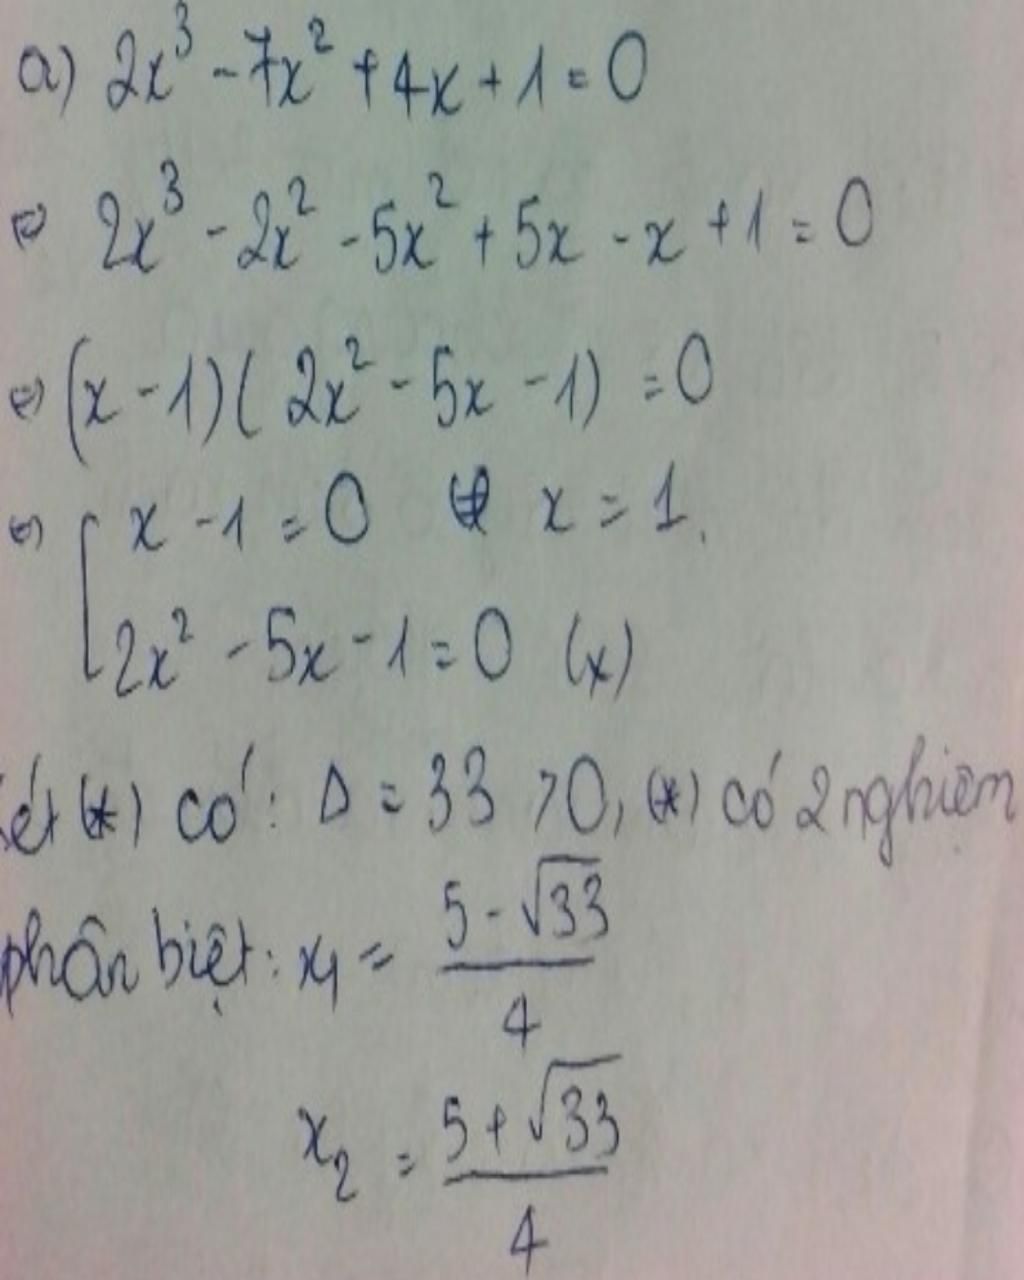 a) 2x³ - 7x² + 4x + 1 = 0
⇔ 2x³ - 2x² - 5x² + 5x - x + 1 = 0
⇔ (x - 1)(2x² - 5x - 1) = 0
⇔ [ x - 1 = 0 ⇔ x = 1.
2x² - 5x - 1 = 0 (*)
Xét (*) có: Δ = 33 > 0, (*) có 2 nghiệm
phân biệt: x₁ = (5 - √33)/4
x₂ = (5 + √33)/4